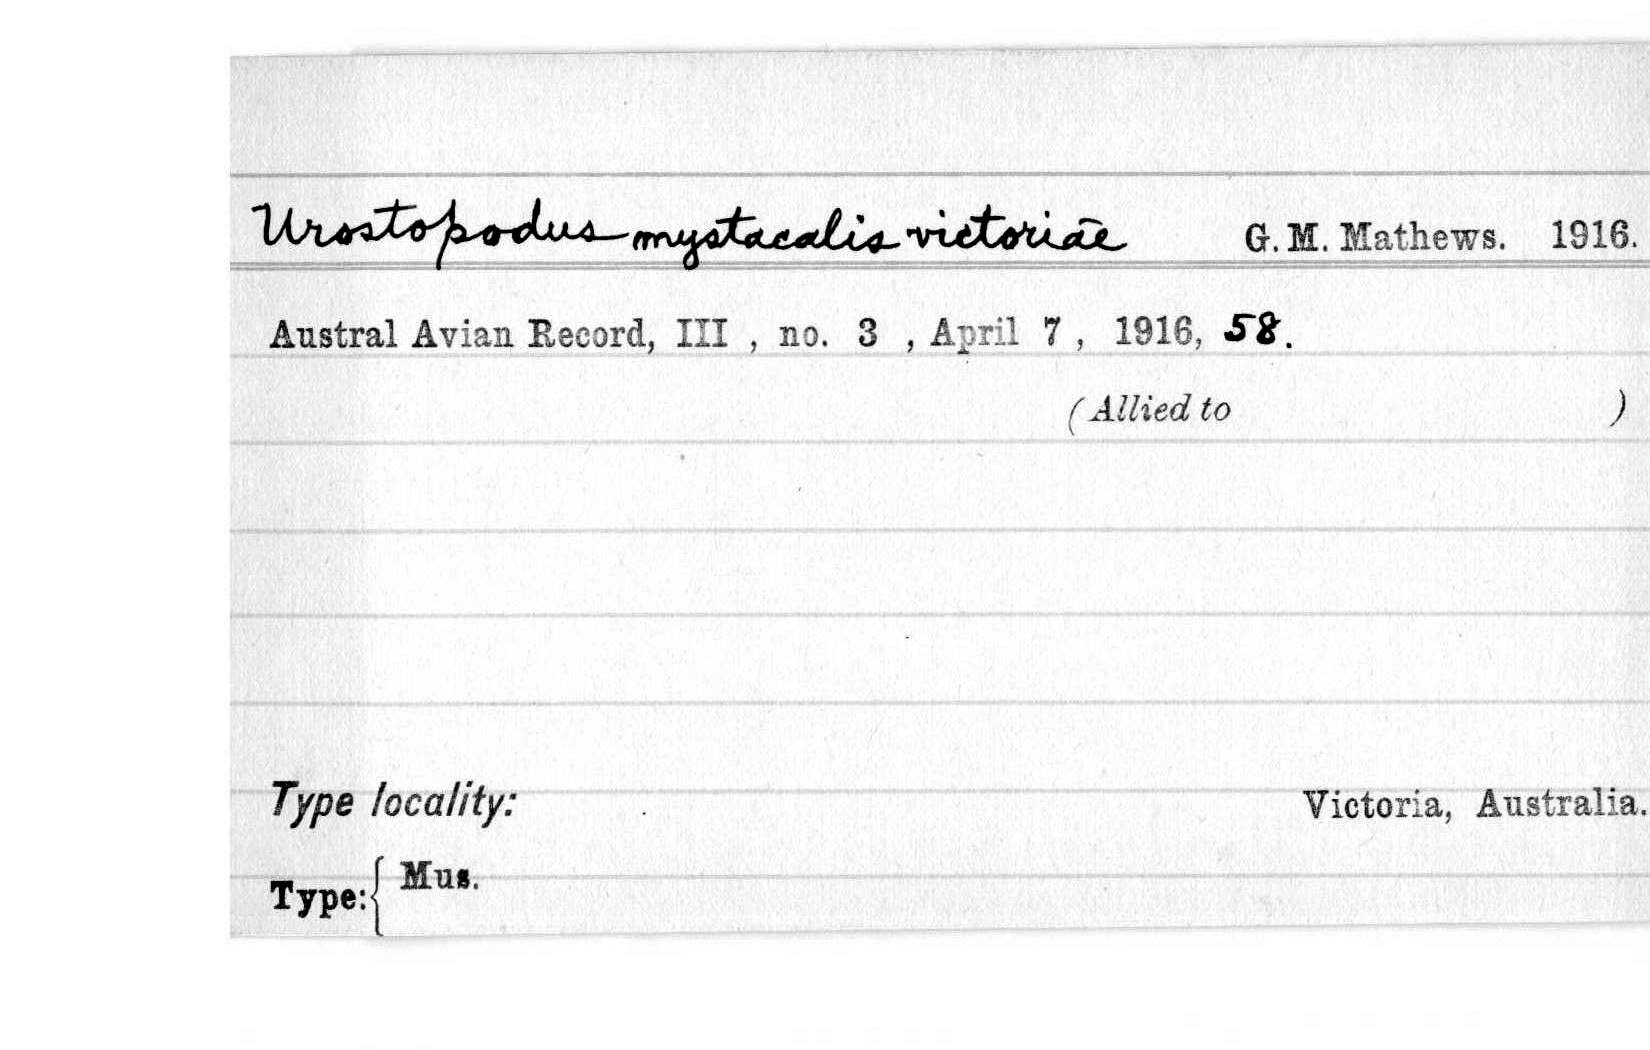 Urostopodus mystacalis victoriāe G. M. Mathews. 1916.
Austral Avian Record, III , no. 3 , April 7 , 1916, 58.
(Allied to )
Type locality: Victoria, Australia.
Type: { Mus.